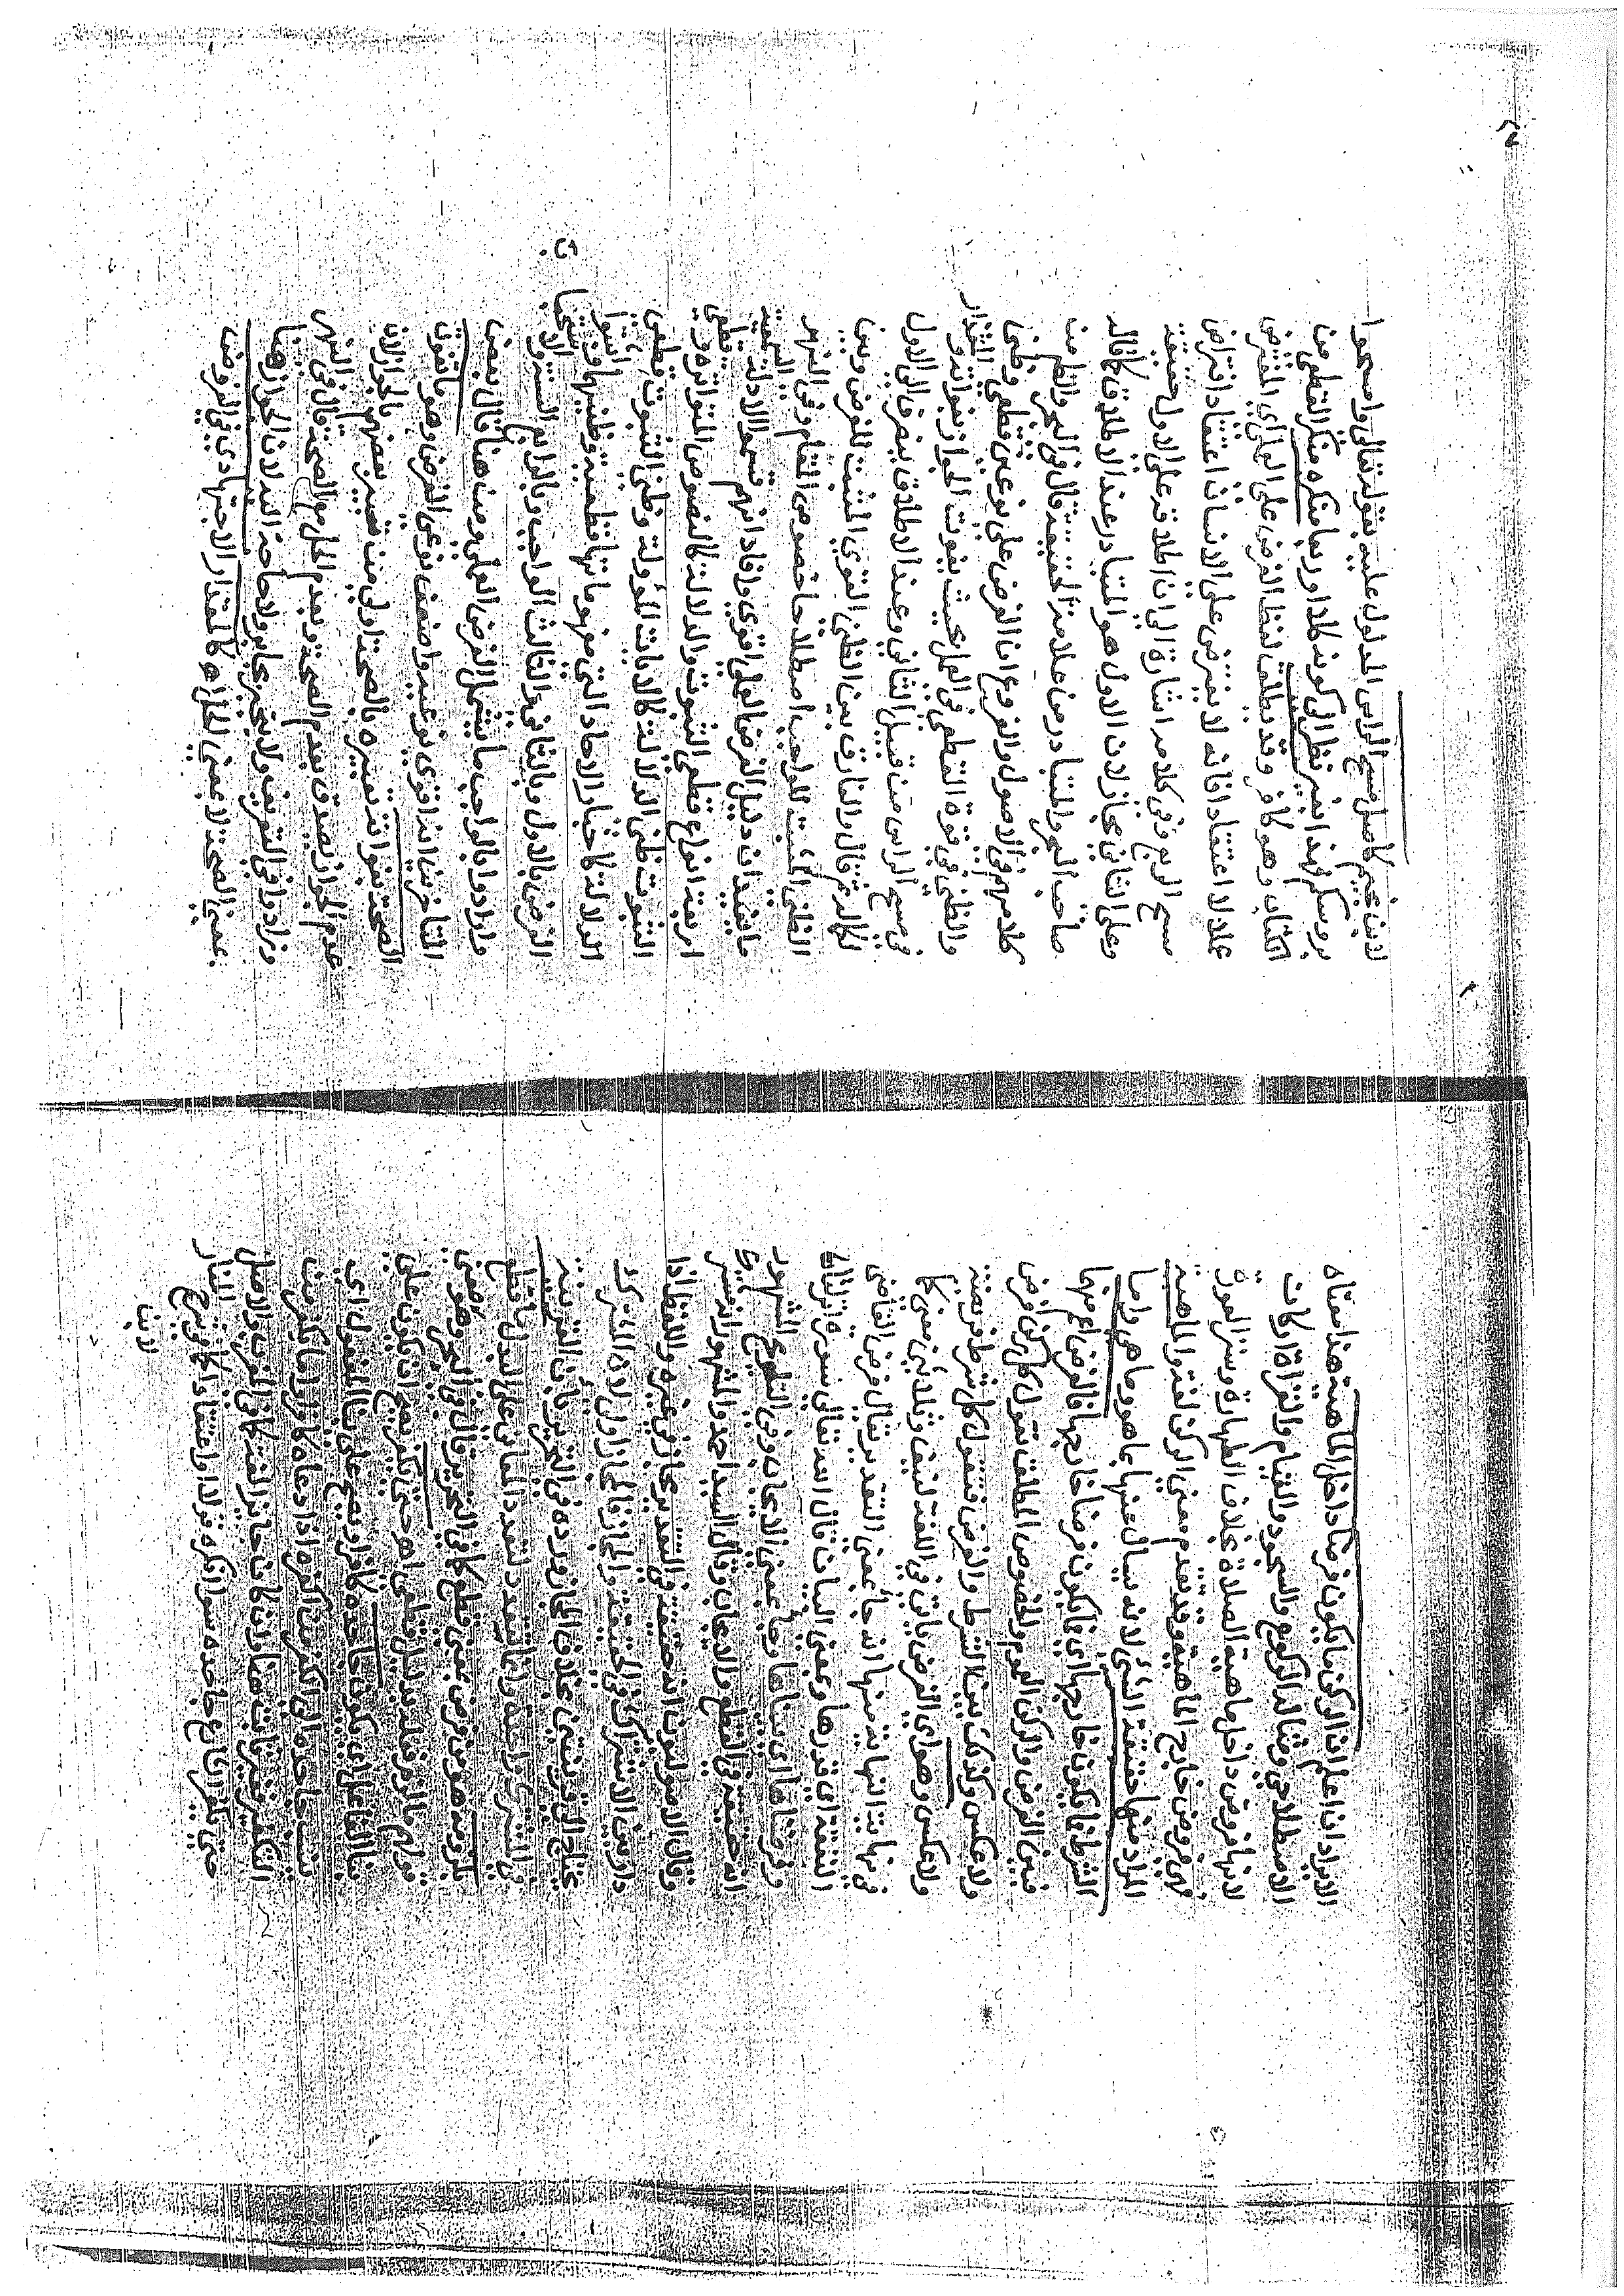 الايراد ان اعلم ان الركن ما يكون فرضا داخل الماهية هذا معناه
الاصطلاحي ومثاله الركوع والسجود والقيام والقراة اركان
لانها فروض داخل ماهية الصلاة بخلاف الطهارة وستر العورة
فهي فروض خارج الماهية وقد يتقدم معنى الركن لغة والماهية
المراد منها حقيقة الشئ لانه يسال عنها بما هو وما هي واما
الشرط ما يكون خارجها اي ما يكون فرضا خارجها فالفرض اعم منها
فبين الفرض والركن العموم والخصوص المطلق تقول كل ركن فرض
ولا عكس وكذلك بين الشرط والفرض فتقول كل شرط فرض
ولا عكس وهو اي الفرض ياتي في اللغة لنيف وثلاثين معنى كما
في نهاية النهاية منها انه جا بمعنى التقدير يقال فرض القاضي
النفقة اي قدرها وبمعنى البيان قال الله تعالى سورة انزلناها
وفرضناها اي بيناها وجا بمعنى الايجاب وفي التلويح المشهور
انه حقيقة في القطع والايجاب وقال السيد احمد والمشهور انه
وقال الاصوليون انه حقيقة في التقدير مجاز في غيره واللفظ اذا
دار بين الاشتراك والحقيقة والمجاز فالمجاز اولى لان المشترك
يحتاج الى قرينتين بخلاف المجاز ورده في التحرير بان القرينة
في المشترك واحدة وانما تتعدد لتعدد المعاني على البدل ما قطع
بلزومه هو من فرض بمعنى قطع كما في التحرير قال في البحر وهو معنى
قولهم ما لزم فعله بدليل قطعي اهـ حتى يكفر يصح ان يكون على
بنا الفاعل اي يكون جاحده كافرا ويصح على بنا المفعول اي
ينسب جاحده الى الكفر من اكفره اذا دعاه كافرا واما يكفر من
التكفير فغير ثابت هنا وان كان جايز لغة كما في المغرب والاصل
حتى يكفر جاحده سوا انكره قولا او اعتقادا كما في شرح المنار
لابن
لابن نجيم كاصل مسح الراس المدلول عليه بقوله تعالى وامسحوا
بروسكم فهذا بغير نظر الى كونه كلا او ربعا منكره منكر القطعي من
الكتاب وهو كافر وقد يطلق لفظ الفرض على العملي اي المفترض
عملا لا اعتقادا فانه لا يفترض على الانسان اعتقاد افتراض
مسح الربع وفي كلامه اشارة الى ان اطلاقه على الاول حقيقة
وعلى الثاني مجاز لان الاول هو المتبادر عند الاطلاق كما قاله
صاحب البحر والتبادر من علامة الحقيقة قال في البحر والظاهر من
كلامهم في الاصول والفروع ان الفرض على نوعين قطعي وظني
والظني في قوة القطعي في العمل بحيث يفوت الجواز بفواته والمقدار
في مسح الراس من قبيل الثاني وعند الاطلاق ينصرف الى الاول
لكماله ثم قال والفارق بين الظني القوي المثبت للفرض وبين
الظني المثبت للواجب اصطلاحا خصوص المقام وفي النهر
ما يفيد ان دليل الفرض العملي اقوى وافاد انهم قسموا الادلة السمعية
اربعة انواع قطعي الثبوت والدلالة كالنصوص المتواترة وقطعي
الثبوت ظني الدلالة كالايات المؤولة وظني الثبوت قطعي
الدلالة كاخبار الاحاد التي مفهوماتها قطعية وظنيهما فاثبتوا
الفرض بالاول وبالثاني والثالث الواجب وبالرابع السنة والاستحباب
وارادوا بالواجب ما يشمل الفرض العملي ومن هنا قال بعض
المتاخرين انه اقوى نوعيه واضعف نوعي الفرض وهو ما تفوت
الصحة بفواته تعبيره بالصحة اولى من تعبير بعضهم بالجواز لان
عدم الجواز يصدق بعدم الصحة وبعدم الحل مع الصحة قال في النهر
وزادوا في التعريف ولا ينجبر بجابر ولا حاجة اليه لان الجواز هنا
بمعنى الصحة لا بمعنى الحل اهـ كالمقدار الاجتهادي في الفروض